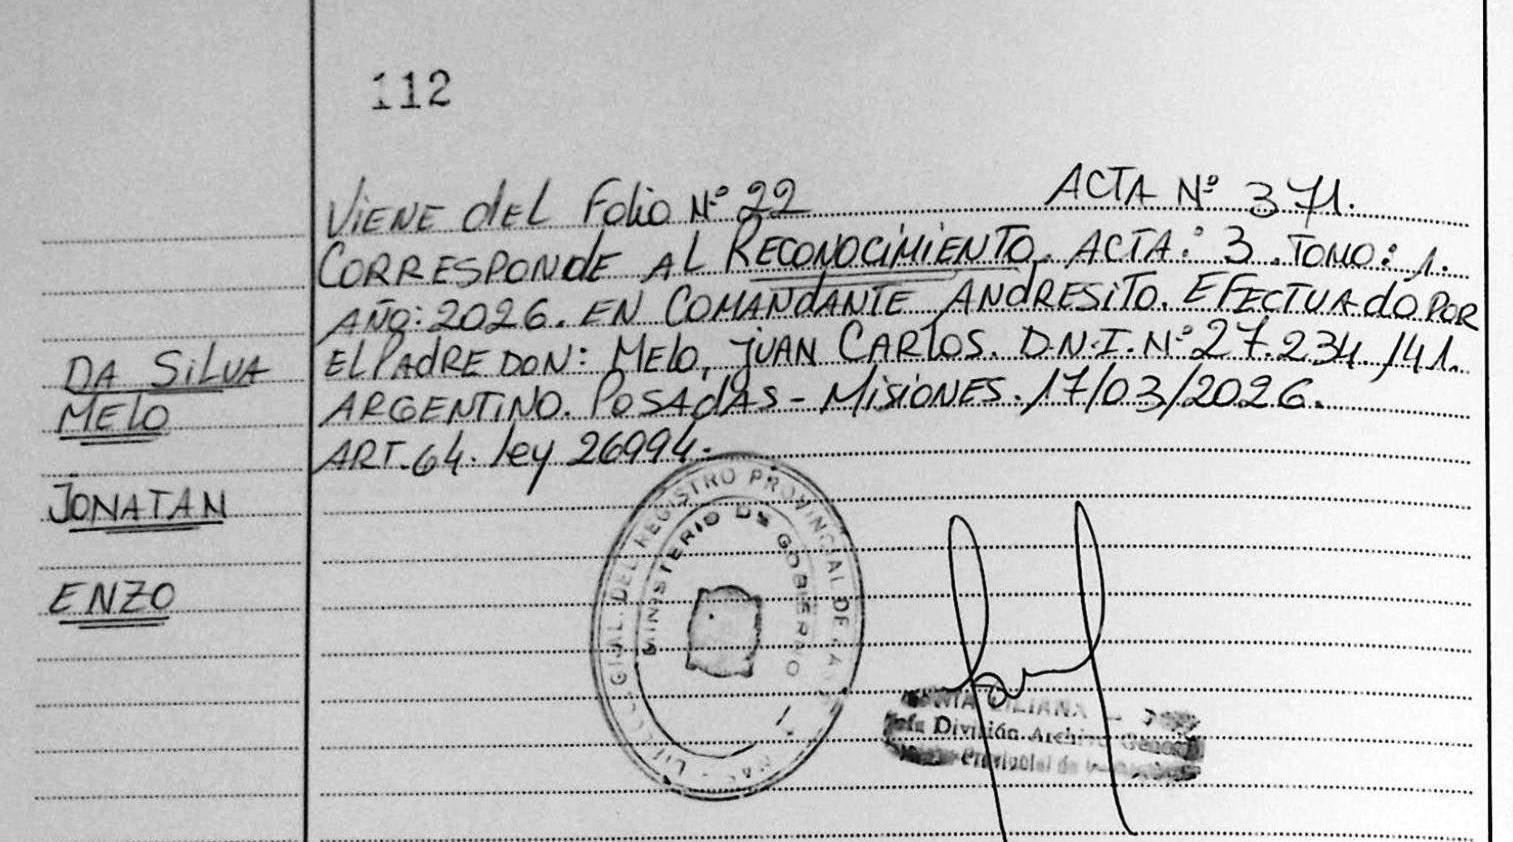 112
Viene del Folio Nº 22 ACTA Nº 371.
CORRESPONDE AL RECONOCIMIENTO. ACTA: 3. TOMO: 1.
AÑO: 2026. EN COMANDANTE ANDRESITO. EFECTUADO POR
EL PADRE DON: MELO, JUAN CARLOS. D.N.I. Nº 27.234.141.
ARGENTINO. POSADAS - MISIONES. 17/03/2026.
ART. 64. Ley 26994.
DA SILVA
MELO
JONATAN
ENZO
REGISTRO PROVINCIAL DE
MINISTERIO DE GOBIERNO
LILIANA
División Archivo General
Provincial de